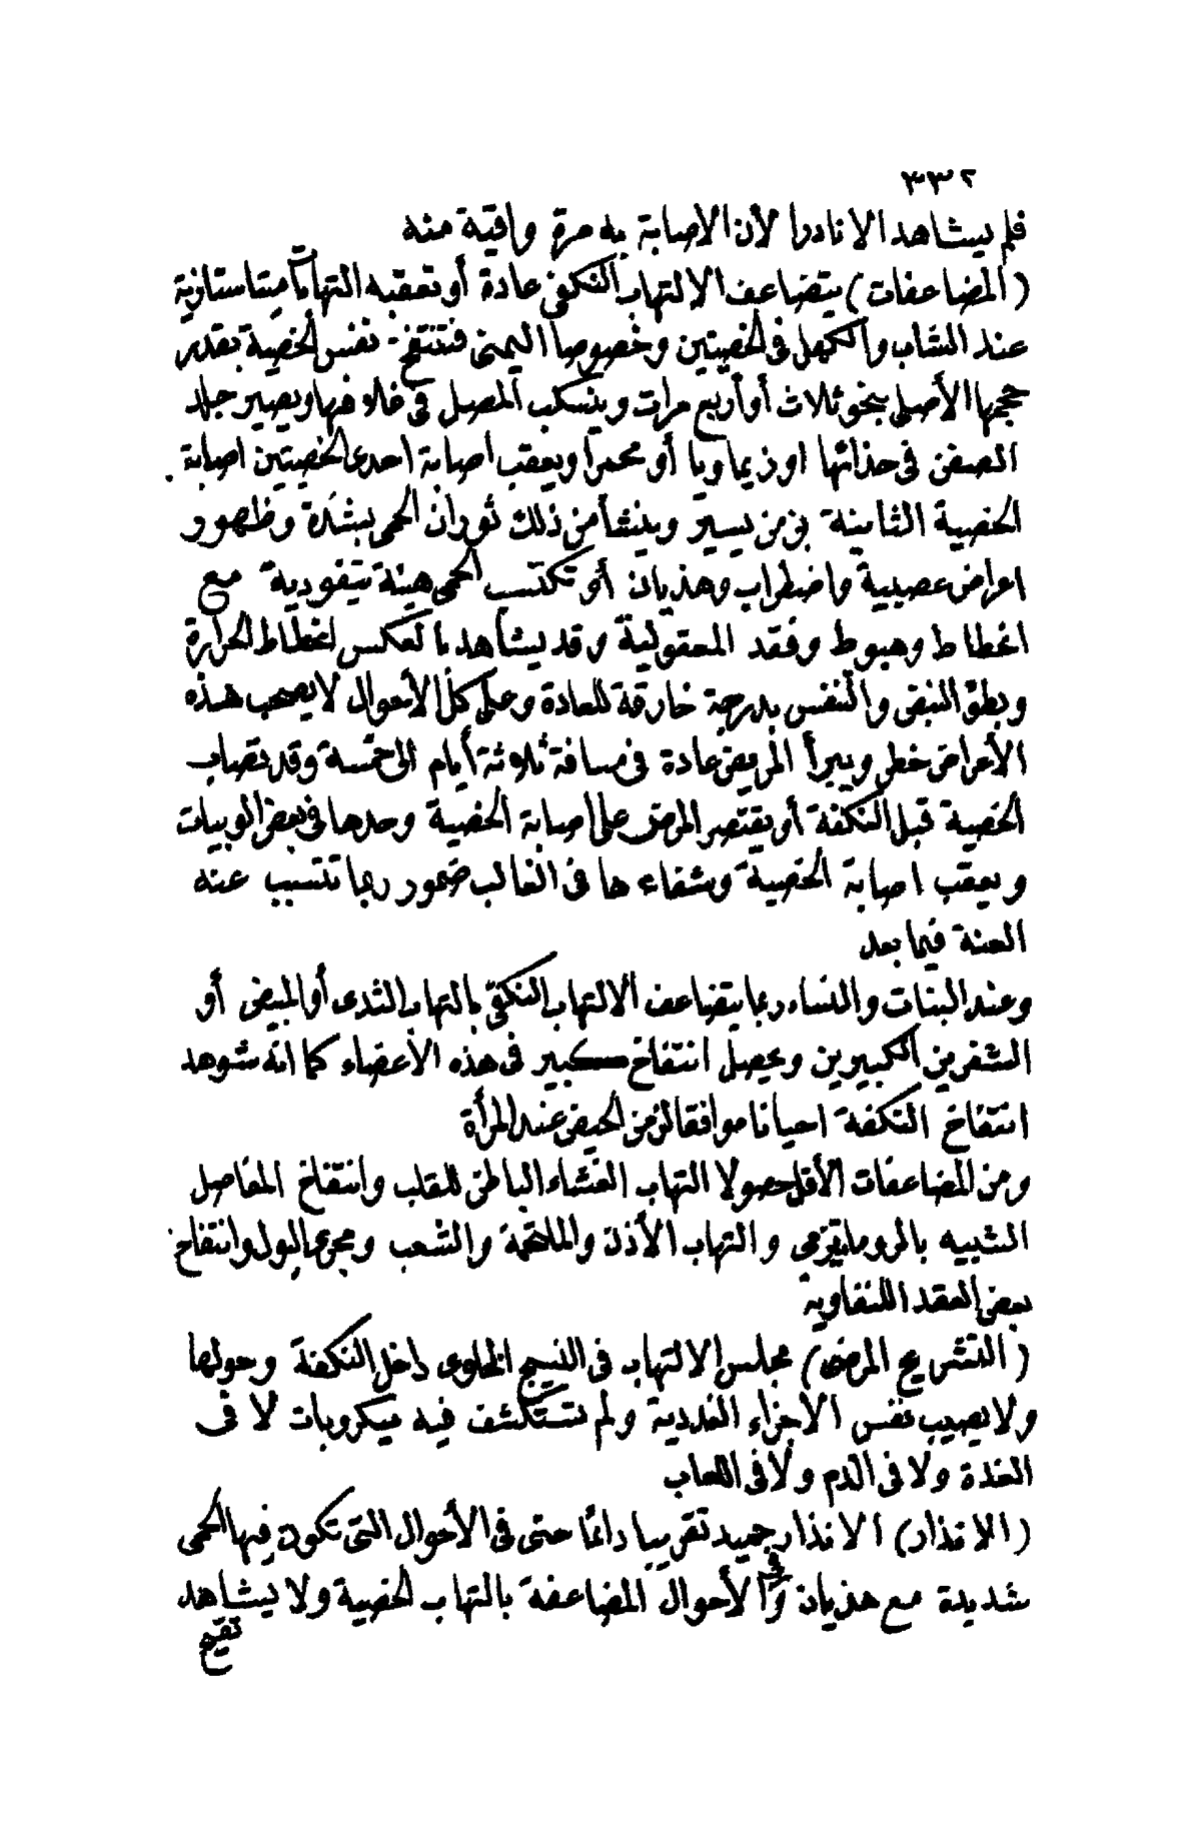 ٣٣٢
فلم يشاهد الا نادرا لأن الاصابة به مرة واقية منه
(المضاعفات) يتضاعف الالتهاب النكفى عادة أو تعقبه التهابات ميتاستازية
عند الشاب والكهل فى الخصيتين وخصوصا اليمنى فتنتفخ نفس الخصية بقدر
حجمها الأصلى بنحو ثلاث أو أربع مرات وينسكب المصل فى غلافها ويصير جلد
الصفن فى حذائها اوزيماويا أو محمرا ويعقب اصابة احدى الخصيتين اصابة
الخصية الثانية بزمن يسير وينشأ من ذلك ثوران الحمى بشدة وظهور
اعراض عصبية واضطراب وهذيان أو تكتسب الحمى هيئة تيفودية مع
انحطاط وهبوط وفقد المعقولية وقد يشاهد بالعكس انحطاط الحرارة
وبطؤ النبض والتنفس بدرجة خارقة للعادة وعلى كل الأحوال لا يصحب هذه
الأعراض خطر ويبرأ المريض عادة فى مسافة ثلاثة أيام الى خمسة وقد تصاب
الخصية قبل النكفة أو يقتصر المرض على اصابة الخصية وحدها فى بعض الوبيات
ويعقب اصابة الخصية وشفاءها فى الغالب ضمور ربما تتسبب عنه
العنة فيما بعد
وعند البنات والنساء ربما يتضاعف الالتهاب النكفى بالتهاب الثدى أو المبيض أو
الشفرين الكبيرين ويحصل انتفاخ كبير فى هذه الأعضاء كما انه شوهد
انتفاخ النكفة احيانا موافقا لزمن الحيض عند المرأة
ومن المضاعفات الأقل حصولا التهاب الغشاء الباطن للقلب وانتفاخ المفاصل
الشبيه بالروماتيزمى والتهاب الأذن والملتحمة والشعب ومجرى البول وانتفاخ
بعض العقد اللنفاوية
(التشريح المرضى) مجلس الالتهاب فى النسيج الخلوى داخل النكفة وحولها
ولا يصيب نفس الأجزاء الغددية ولم تستكشف فيه ميكروبات لا فى
الغدة ولا فى الدم ولا فى اللعاب
(الانذار) الانذار جيد تقريبا دائما حتى فى الأحوال التى تكون فيها الحمى
شديدة مع هذيان وفى الأحوال المضاعفة بالتهاب الخصية ولا يشاهد
تقيح